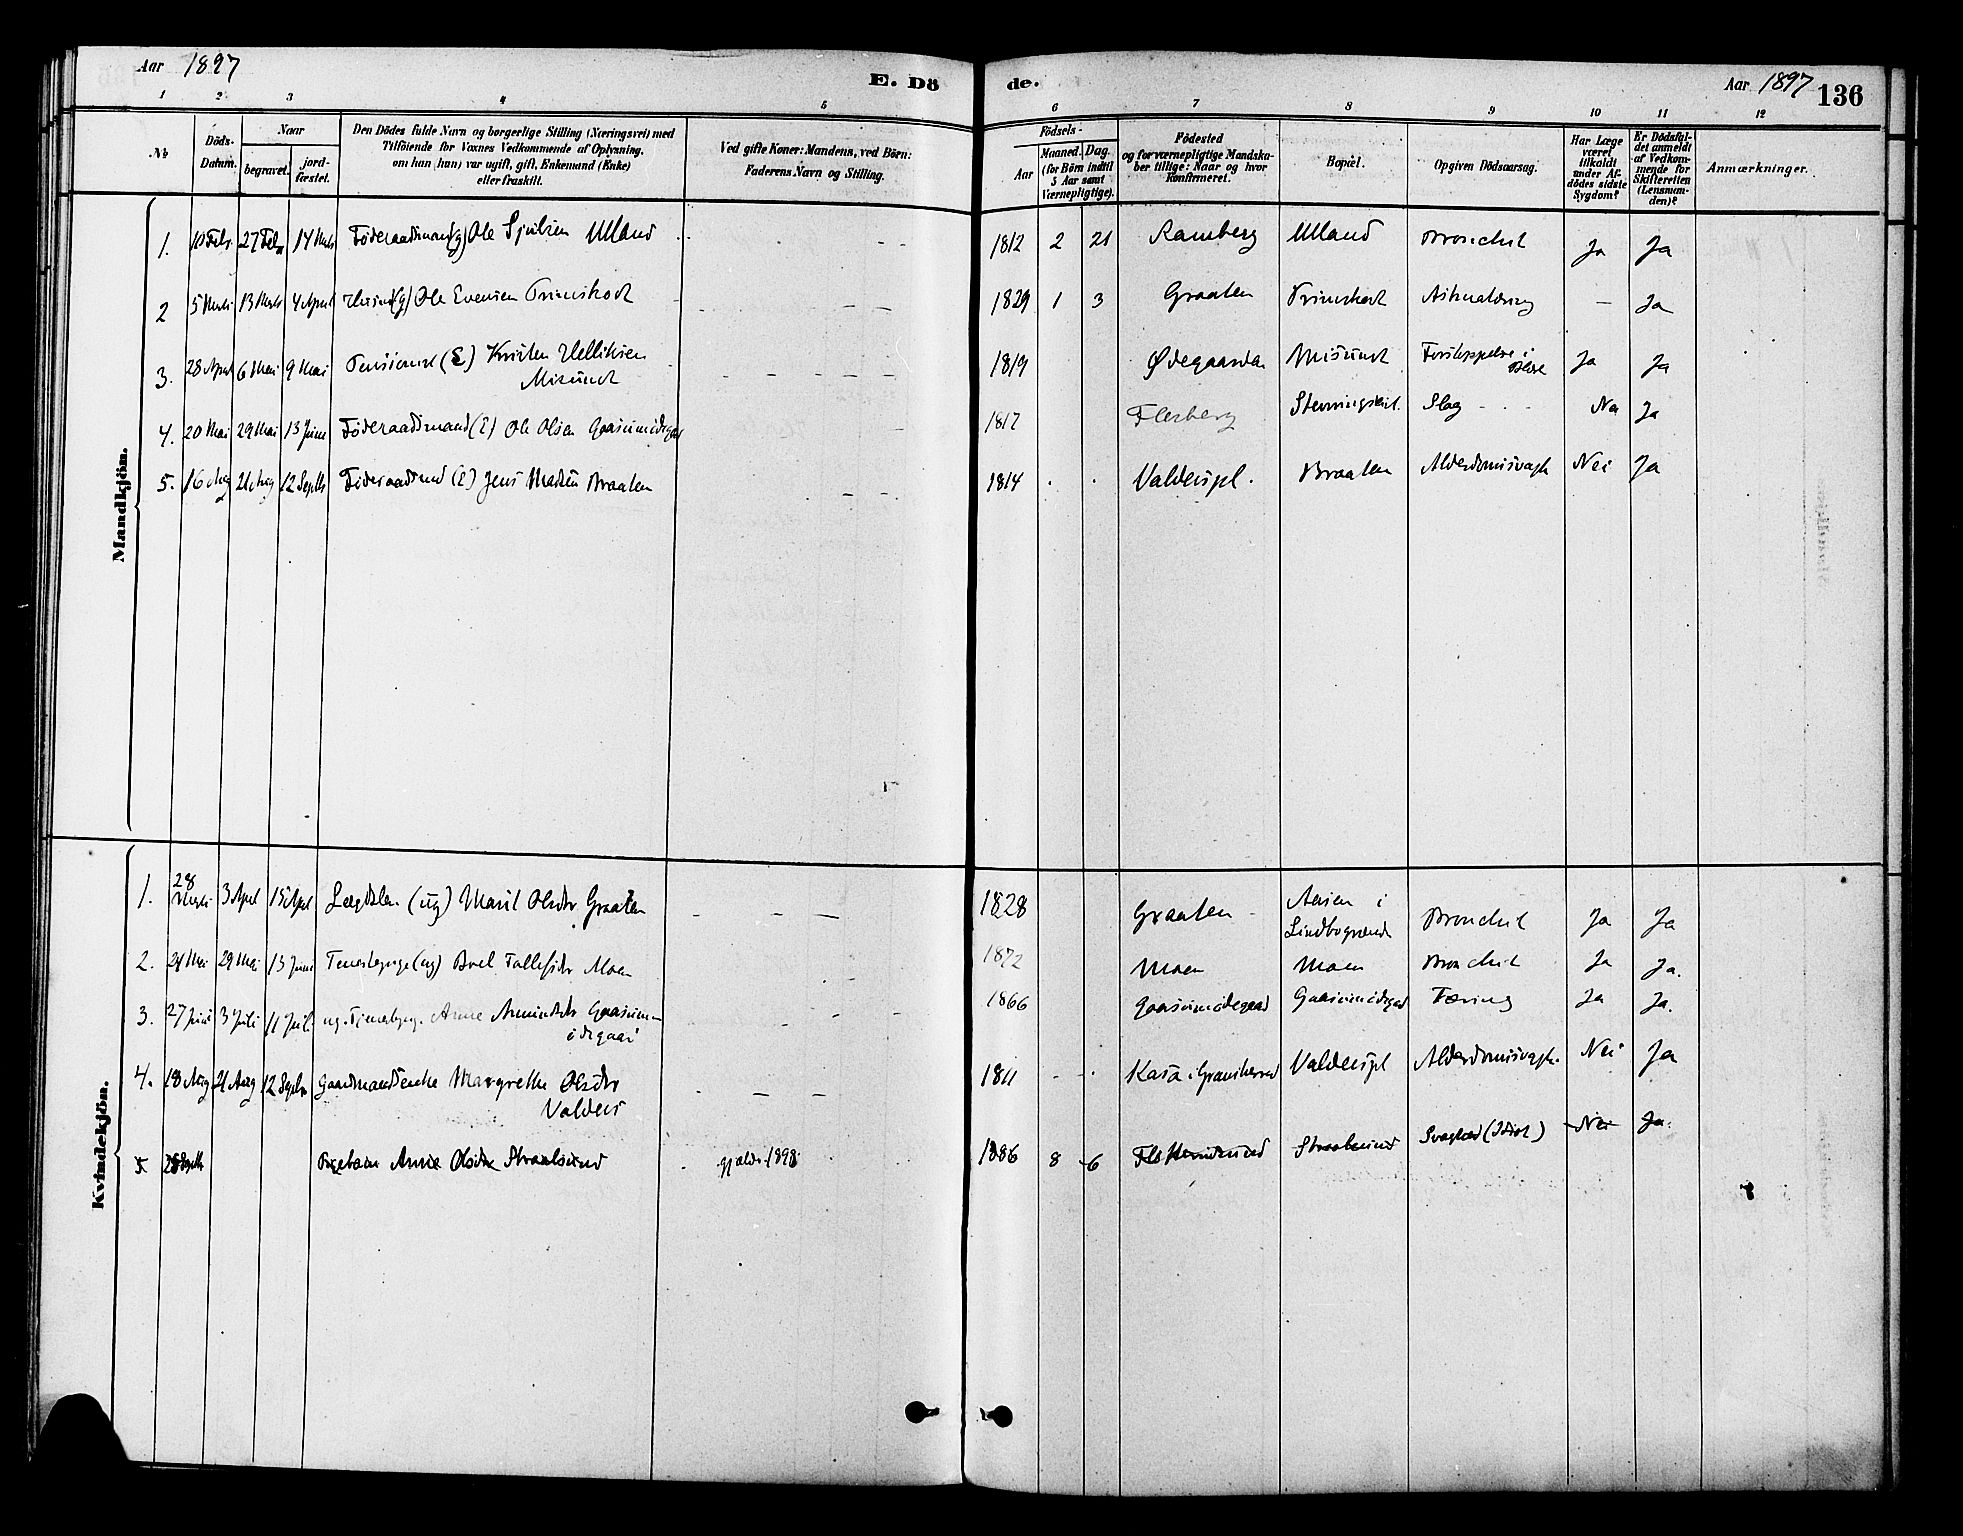 Aar 1897
E. Dö
de.
Aar 1897 136
1 2 3 4 5 6 7 8 9 10 11 12
No
Döds-
Datum.
Naar
begravet.
jord-
fæstet.
Den Dödes fulde Navn og borgerlige Stilling (Næringsvei) med
Tilföiende for Voxnes Vedkommende af Oplysning,
om han (hun) var ugift, gift, Enkemand (Enke)
eller fraskilt.
Ved gifte Koner: Mandens, ved Börn:
Faderens Navn og Stilling.
Födsels-
Aar
Maaned. Dag.
(for Börn indtil
3 Aar samt
Værnepligtige).
Födested
og for værnepligtige Mandska-
ber tillige: Naar og hvor
Konfirmeret.
Bopæl.
Opgiven Dödsaarsag.
Har Læge
været
tilkaldt
under Af-
dödes sidste
Sygdom?
Er Dödsfal-
det anmeldt
af Vedkom-
mende for
Skifteretten
(Lensman-
den)?
Anmærkninger.
Mandkjön.
1. 10 Febr. 27 Febr 14 Marts Föderaadsmand (g) Ole Sjulsen Ulland 1812 2 21 Ramberg Ulland Bronchit Ja Ja
2 5 Marts 13 Marts 4 April (g) Ole Evensen 1829 1 3 Graaten — Ja
3. 28 April 6 Mai 9 Mai (E) Kristen Helliksen
Misund 1819 Ødegaarden Misund Forstoppelse i
Blære Ja Ja
4. 20 Mai 29 Mai 13 Juni Föderaadsmand (E) Ole Olsen 1817 Flesberg Slag Ja
5. 16 Aug 21 Aug 12 Septb Föderaadsmd (E) Jens Madsen Braaten 1814 Valderspl. Braaten Alderdomssvagh Nei Ja
Kvindekjön.
1. 28
Marts 3 April 15 April Lægdslem (ug) Marit Olsdtr Graaten 1828 Graaten Aasen i
Lindbogrænda Bronchit Ja Ja
2. 24 Mai 29 Mai 13 Juni Tjenestepige (ug) Birgit Tollefsdtr Moen 1872 Moen Moen Bronchit Ja Ja.
3. 27 Juni 3 Juli 11 Juli. ug. Tjenestepig. Anne Amundsdtr 1866 Tæring Ja Ja.
4. 18 Aug 21 Aug 12 Septbr Gaardmandsenke Margrethe Olsdtr
Valders 1811 Kasa i Gransherred Valderspl Alderdomssvagh. Nei Ja
5. 28 Septb Pigebarn Anne Olsdtr gjælder 1898 1886 8 6 Svaghed (Idiot) Nei Ja.